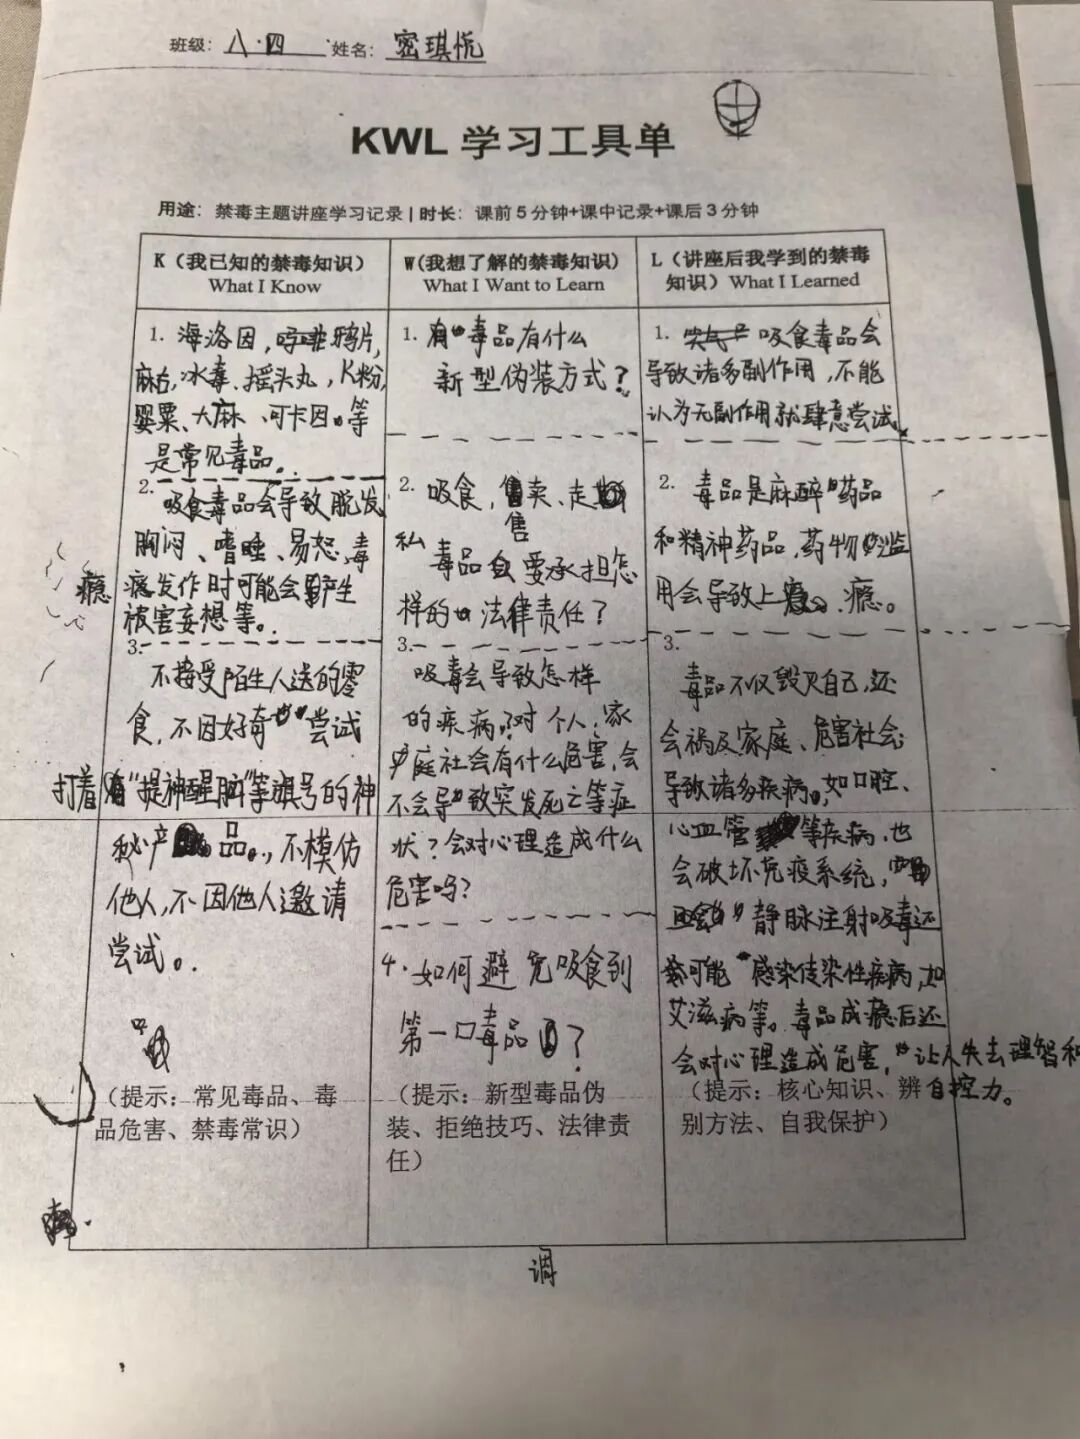 班级：八·四 姓名：密琪悦
KWL 学习工具单
用途：禁毒主题讲座学习记录 | 时长：课前5分钟+课中记录+课后3分钟
K（我已知的禁毒知识）
What I Know
1. 海洛因，鸦片，
麻古，冰毒、摇头丸，K粉，
罂粟、大麻、可卡因。等
是常见毒品。
2. 吸食毒品会导致脱发
胸闷、嗜睡、易怒，毒
瘾
瘾发作时可能会产生
被害妄想等。
3.
不接受陌生人送的零
食，不因好奇尝试
打着“提神醒脑”等旗号的神
秘产品。，不模仿
他人，不因他人邀请
尝试。
（提示：常见毒品、毒
品危害、禁毒常识）
W(我想了解的禁毒知识）
What I Want to Learn
1. 毒品有什么
新型伪装方式？
2. 吸食，售卖、走
售
私
毒品要承担怎
样的法律责任？
3.
吸毒会导致怎样
的疾病，对个人，家
庭社会有什么危害，会
不会导致突发死亡等症
状？会对心理造成什么
危害吗？
4. 如何避免吸食到
第一口毒品？
（提示：新型毒品伪
装、拒绝技巧、法律责
任）
L（讲座后我学到的禁毒
知识）What I Learned
1. 吸食毒品会
导致诸多副作用，不能
认为无副作用就肆意尝试。
2. 毒品是麻醉药品
和精神药品，药物滥
用会导致上瘾。
3.
毒品不仅毁灭自己，还
会祸及家庭、危害社会；
导致诸多疾病，如口腔、
心血管等疾病，也
会破坏免疫系统，
静脉注射吸毒还
可能感染传染性疾病，如
艾滋病等。毒品成瘾后还
会对心理造成危害，让人失去理智和
自控力。
（提示：核心知识、辨
别方法、自我保护）
调